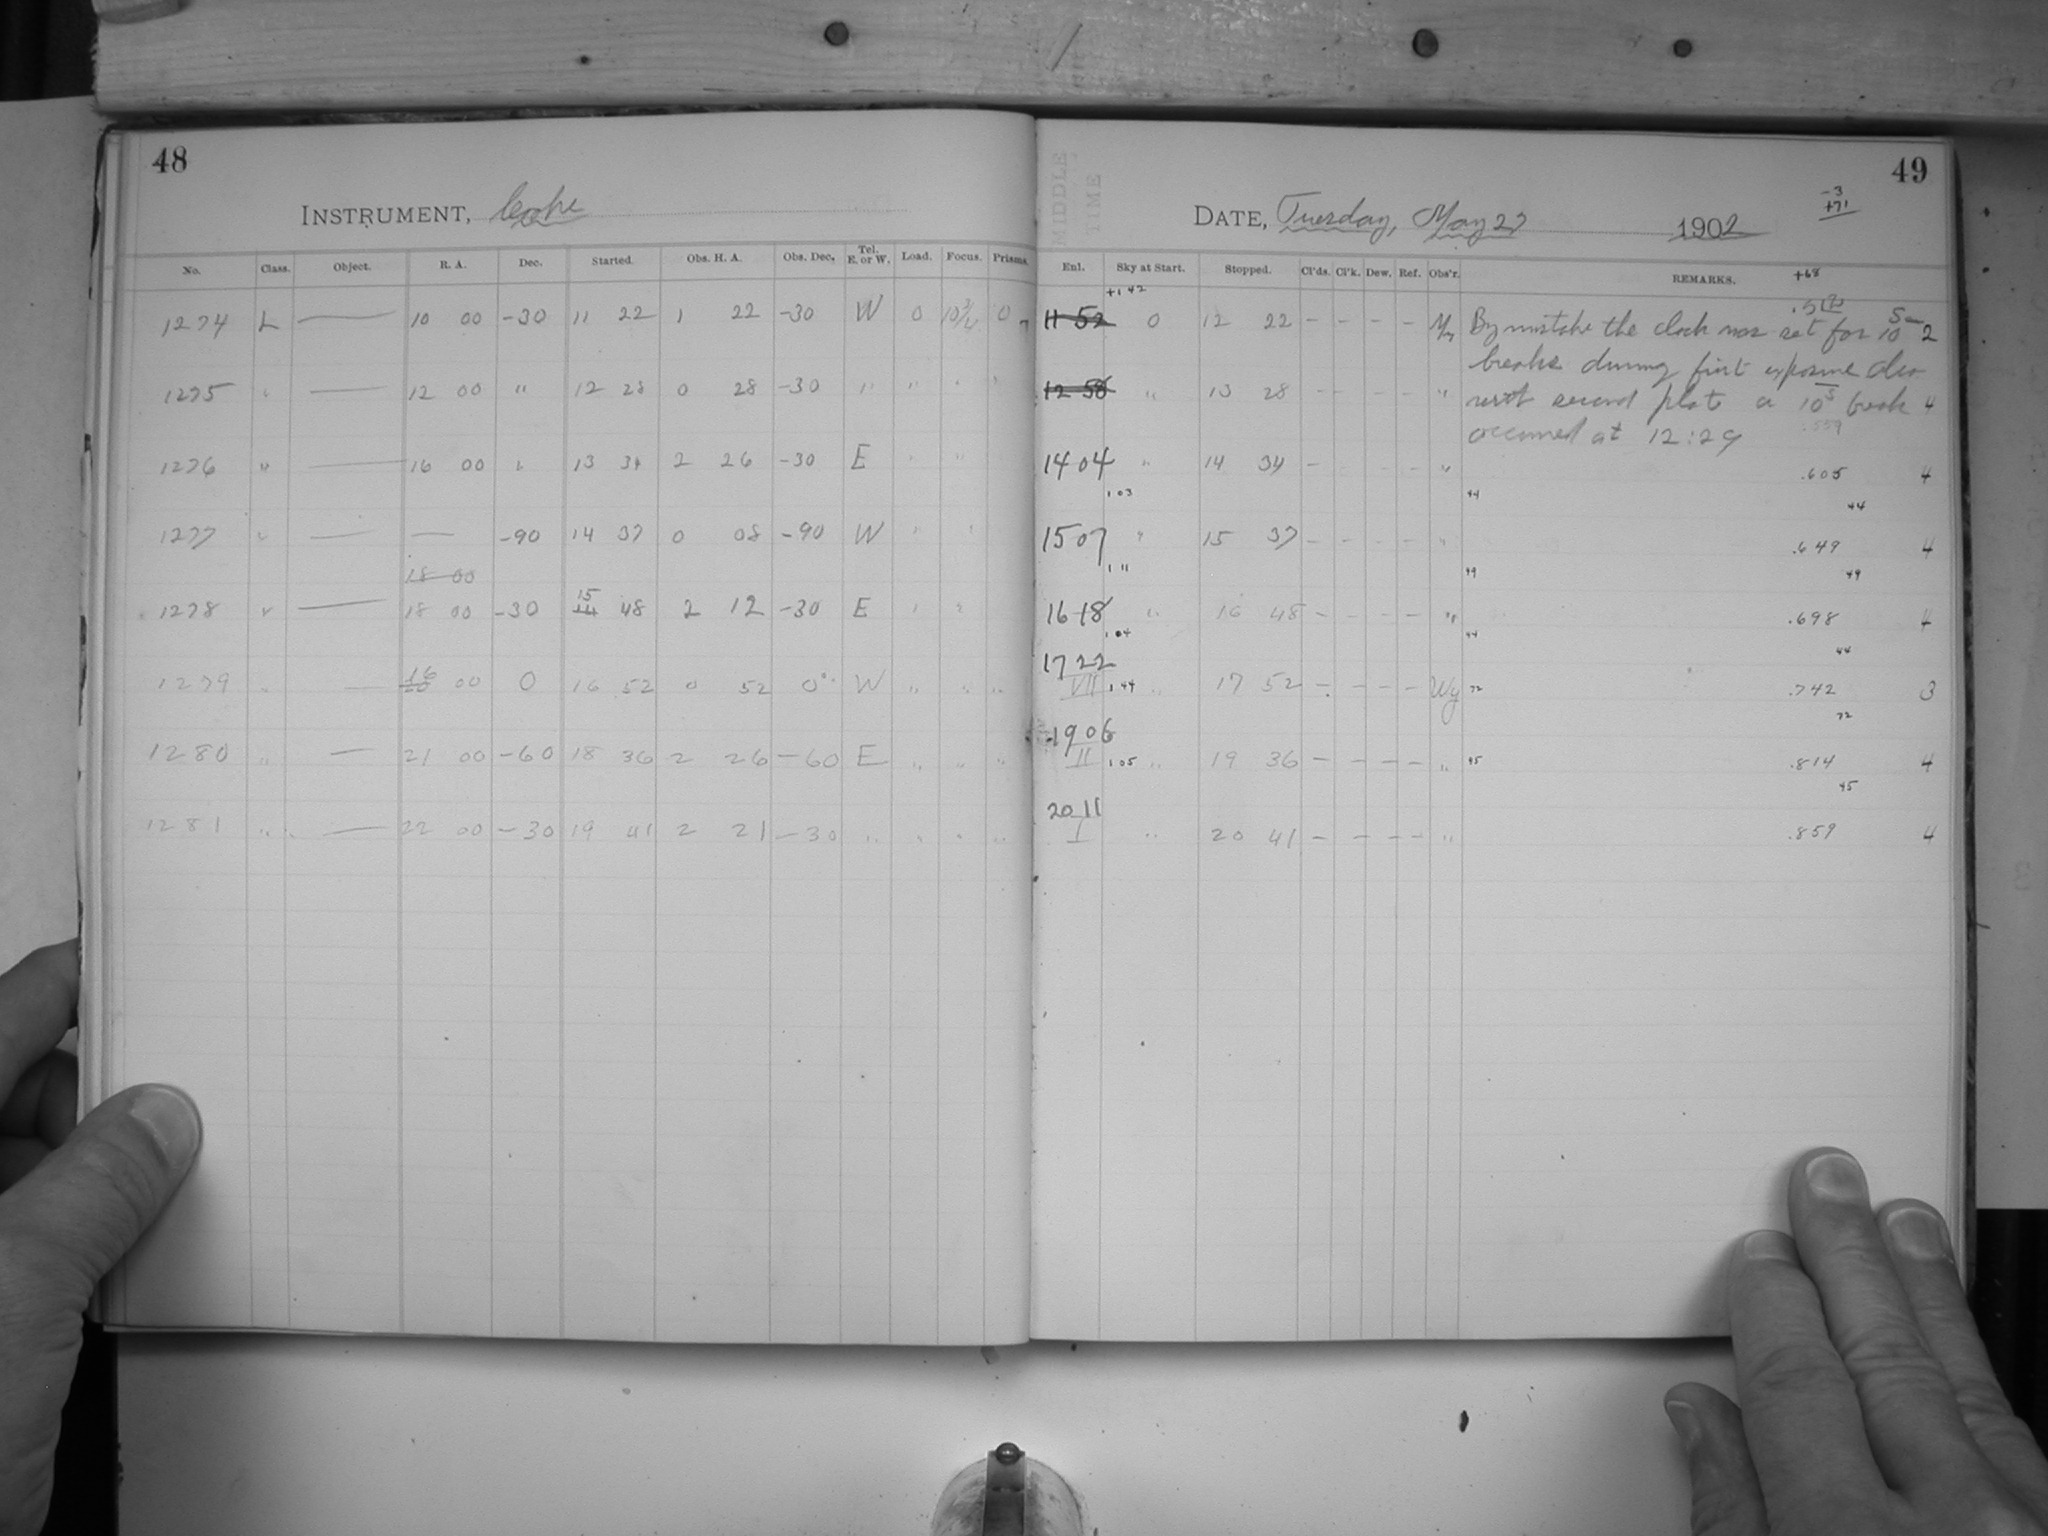 48
INSTRUMENT, Cooke
No. Class. Object. R. A. Dec. Started. Obs. H. A. Obs. Dec. Tel. E. or W. Load. Focus. Prisms.
1274 L — 10 00 -30 11 22 1 22 -30 W 0 10 3/4 0
1275 " — 12 00 " 12 28 0 28 -30 " " " "
1276 " — 16 00 " 13 34 2 26 -30 E " "
1277 " — — -90 14 37 0 08 -90 W " "
18 00
1278 " — 18 00 -30 15 14 48 2 12 -30 E " "
1279 " — 16 00 0 16 52 0 52 0 W " " "
1280 " — 21 00 -60 18 36 2 26 -60 E " " "
1281 " — 22 00 -30 19 41 2 21 -30 " " " "
49
MIDDLE TIME
-3
+71
DATE, Tuesday, May 27 1902
+68
Enl. Sky at Start. Stopped. Cl'ds. Cl'k. Dew. Ref. Obs'r. REMARKS.
+1 42
11 52 0 12 22 - - - - By mistake the clock was set for 10s 2
breaks during first exposure also
12 58 " 13 28 - - - - " second plate a 10s break 4
occurred at 12:29
.559
14 04 " 14 34 - - - - " .605 4
1 03 44 44
15 07 " 15 37 - - - - " .649 4
1 11 49 49
16 18 " 16 48 - - - - " .698 4
1 04 44 44
17 22
VII 1 44 " 17 52 - - - - Wy 72 .742 3
72
19 06
II 1 05 " 19 36 - - - - " 45 .814 4
45
20 11
I " 20 41 - - - - " .859 4